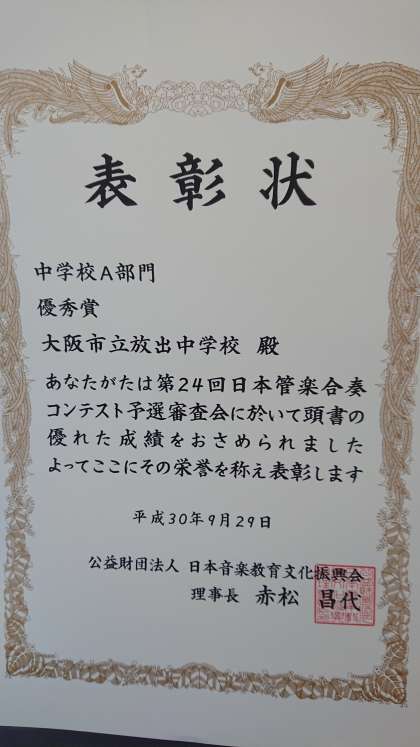 表彰状
中学校A部門
優秀賞
大阪市立放出中学校 殿
あなたがたは第24回日本管楽合奏
コンテスト予選審査会に於いて頭書の
優れた成績をおさめられました
よってここにその栄誉を称え表彰します
平成30年9月29日
公益財団法人 日本音楽教育文化振興会
理事長 赤松 昌代